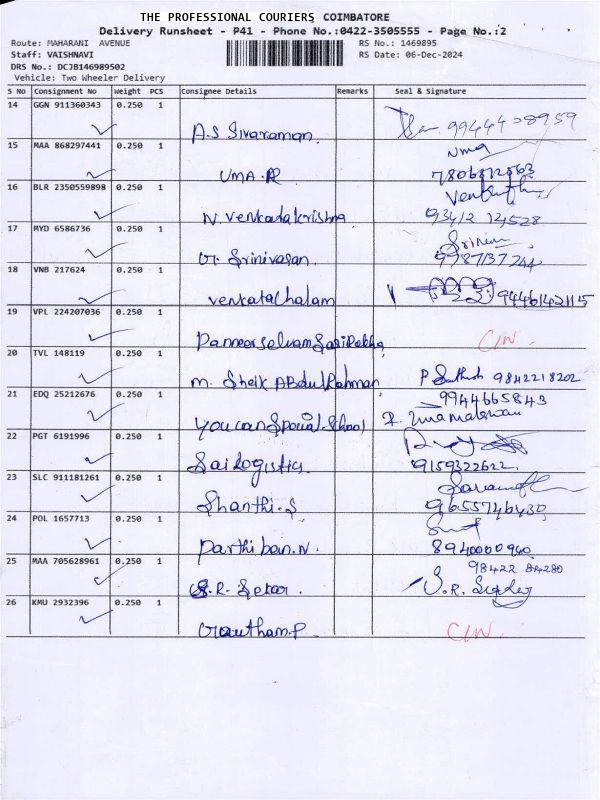 THE PROFESSIONAL COURIERS COIMBATORE
Delivery Runsheet - P41 - Phone No.:0422-3505555 - Page No.:2
Route: MAHARANI AVENUE
RS No.: 1469895
Staff: VAISHNAVI
RS Date: 06-Dec-2024
DRS No.: DCJB146989502
Vehicle: Two Wheeler Delivery
S No Consignment No Weight PCS Consignee Details Remarks Seal & Signature
14 GGN 911360343 0.250 1
A.S Sivaraman.
15 MAA 868297441 0.250 1
Uma
UMA.R
16 BLR 2350559898 0.250 1
N. Venkatakrishna
93412 12528
17 MYD 6586736 0.250 1
Srinivasan.
18 VNB 217624 0.250 1
Venkatachalam
19 VPL 224207036 0.250 1
Panneerselvam Sasirekha
20 TVL 148119 0.250 1
M. Sheik Abdul Rahman
9842218202
21 EDQ 25212676 0.250 1
9944665843
You can Special School
22 PGT 6191996 0.250 1
Sai Logistics.
9159322622
23 SLC 911181261 0.250 1
Shanthi.S
24 POL 1657713 0.250 1
Parthiban.N.
8940000940
25 MAA 705628961 0.250 1
98422 84280
S.R.
26 KMU 2932396 0.250 1
Gowtham.P